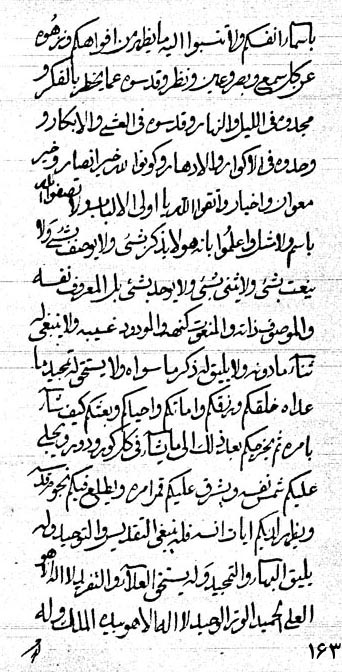 باسماء انفسكم ولا تنسبوا اليه ما يظهر من افواهكم ونزهوه
عن كل سمع وبصر وعلم ونظر وقدسوه عما يخطر بالفكر و
مجدوه فى الليل والنهار وقدسوه فى العشى والابكار و
وحدوه فى الاكوار والادهار وكونوا لله خير انصار وخير
معوان واخيار واتقوا الله يا اولى الالباب ولا تصفوا الله
باسم ولا مثل واعلموا بانه هو لا يذكر بشئ ولا يوصف بشئ ولا
ينعت بشئ ولا يثنى بشئ ولا يوحد بشئ بل المعروف نفسه
والموصوف ذاته والمنعوت كنهه والمودود غيبه ولا ينبغى له
ثناء ما دونه ولا يليق له ذكر ما سواه ولا يستحق له تمجيد ما
عداه خلقكم ورزقكم واماتكم واحياكم ويبعثكم كيف يشاء
بامره ثم يخرجكم بعد ذلك الى ما يشاء فى كل كور ودور ويجلى
عليكم شمس نفسه ويشرق عليكم قمر امره ويطلع فيكم نجوم
ويظهر لديكم ايات انسه فله ينبغى التقديس والتوحيد وله
يليق البهاء والتمجيد وله يستحق العلاء والتفريد لا اله الا هو
العلى الحميد الوحيد لا اله الا هو بيده الملك وله
١٦٣